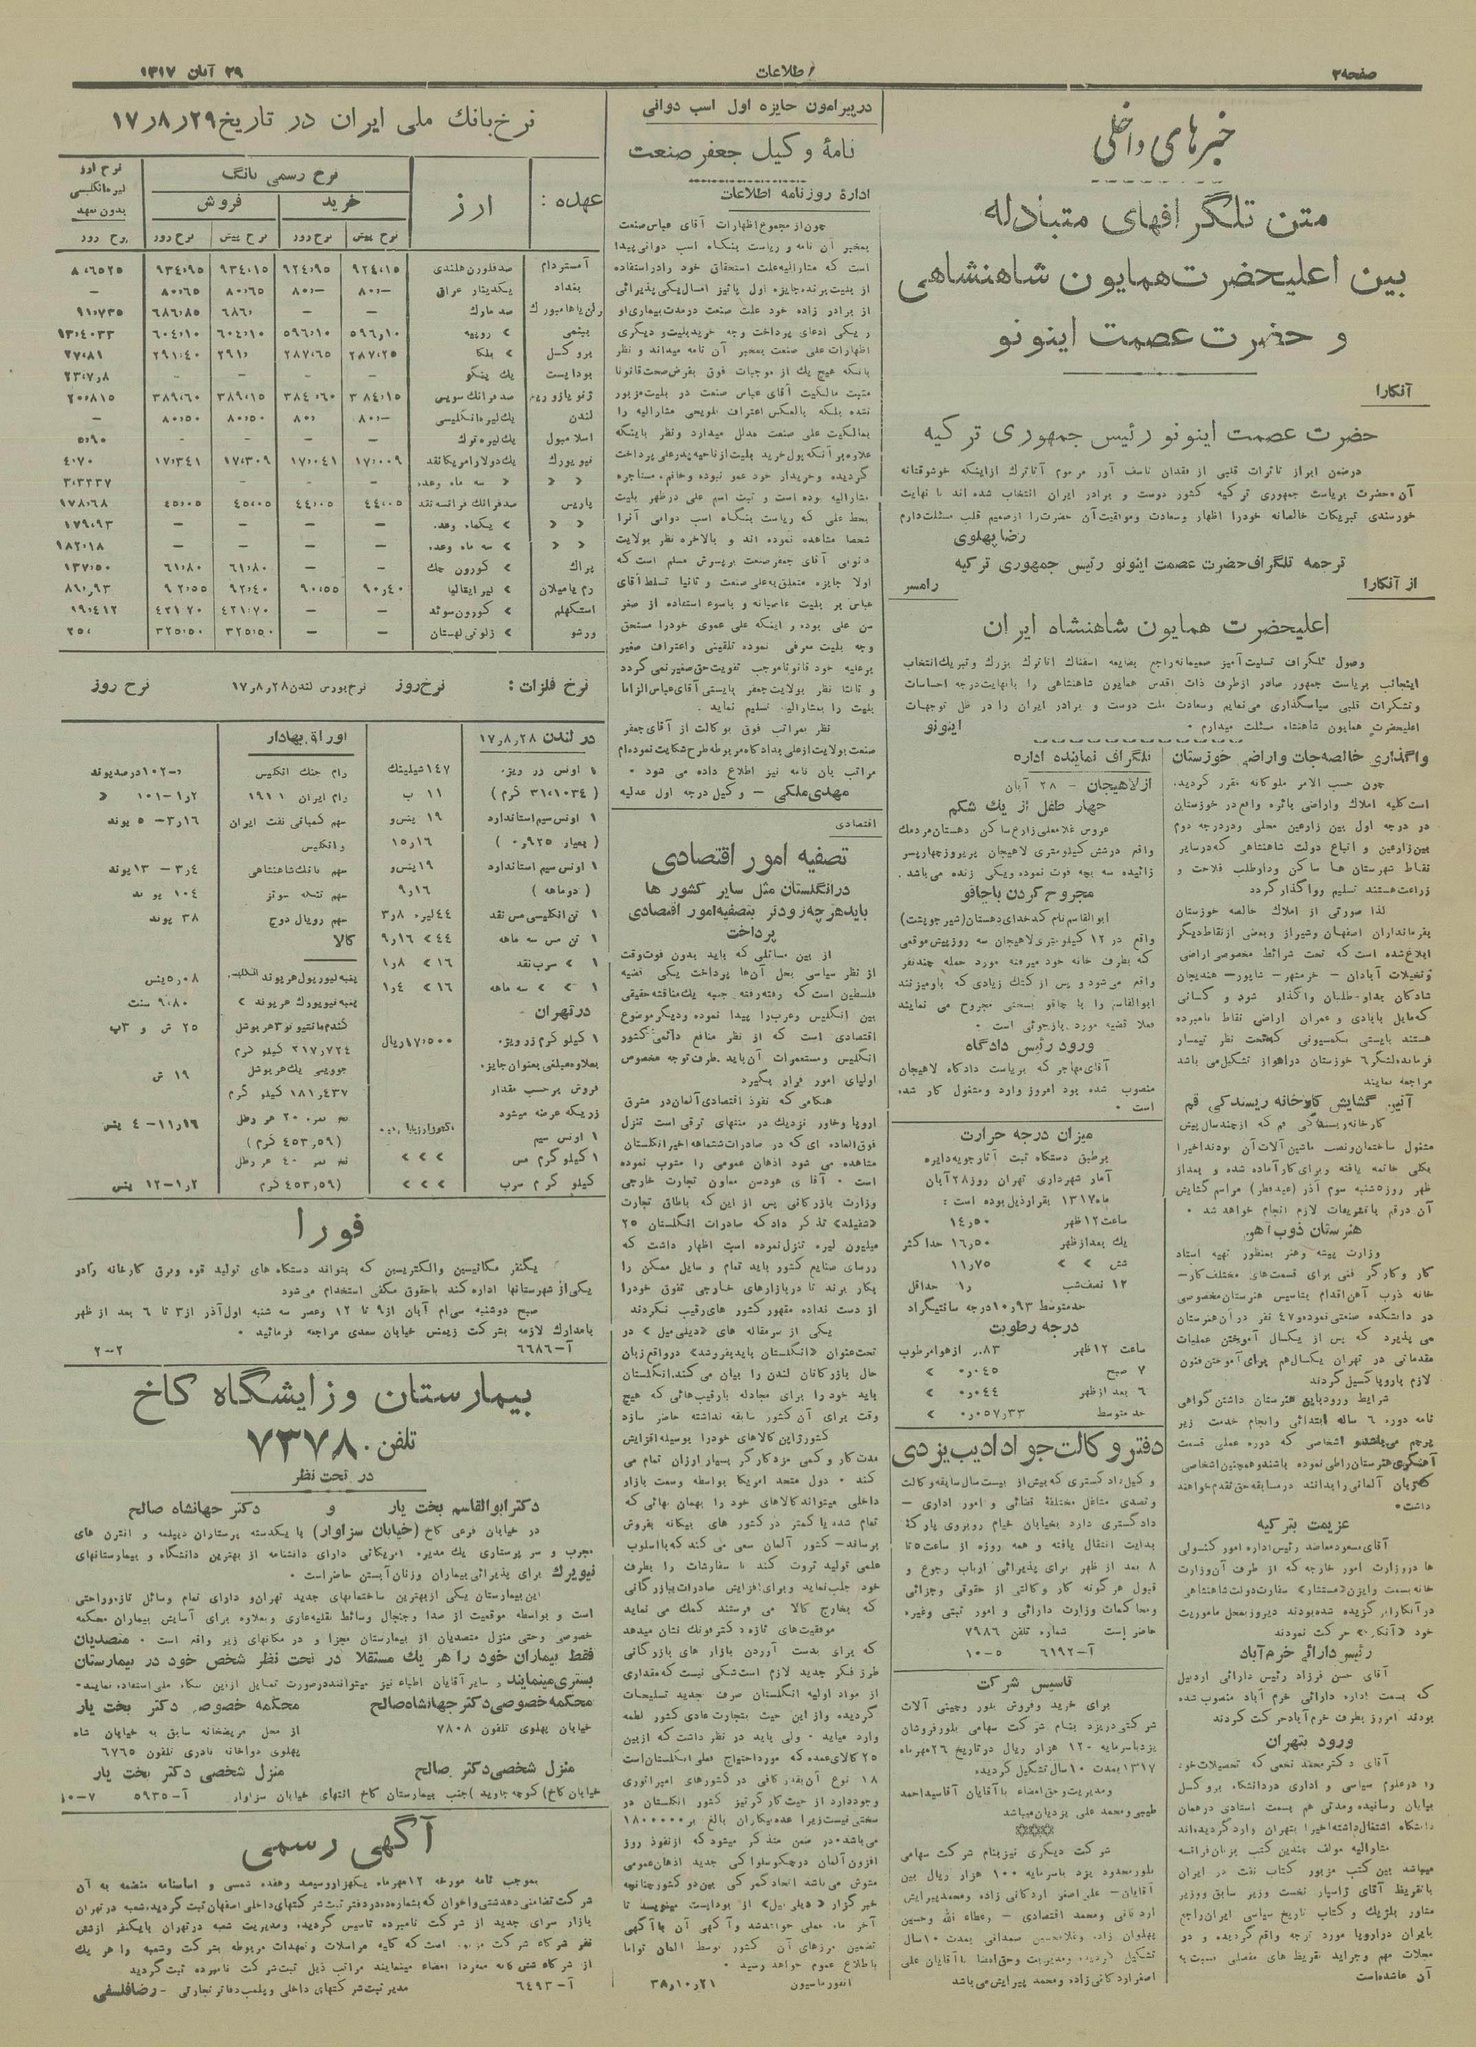 صفحه ۲
اطلاعات
۲۹ آبان ۱۳۱۷
خبرهای داخلی
متن تلگرافهای متبادله
بین اعلیحضرت همایون شاهنشاهی
و حضرت عصمت اینونو
آنکارا
حضرت عصمت اینونو رئیس جمهوری ترکیه
درضمن ابراز تاثرات قلبی از فقدان تاسف آور مرحوم آتاترک ازاینکه خوشوقتانه
آن حضرت بریاست جمهوری ترکیه کشور دوست و برادر ایران انتخاب شده اند با نهایت
خورسندی تبریکات خالصانه خودرا اظهار وسعادت وموافقیت آن حضرت را ازصمیم قلب مسئلت دارم
رضا پهلوی
ترجمه تلگراف حضرت عصمت اینونو رئیس جمهوری ترکیه
از آنکارا
رامسر
اعلیحضرت همایون شاهنشاه ایران
وصول تلگراف تسلیت آمیز صمیمانه راجع بضایعه اسفناک اتاترک بزرگ وتبریک انتخاب
اینجانب بریاست جمهور صادر ازطرف ذات اقدس همایون شاهنشاهی را بانهایت درجه احساسات
وتشکرات قلبی سپاسگذاری می نمایم وسعادت ملت دوست و برادر ایران را در ظل توجهات
اعلیحضرت همایون شاهنشاه مسئلت میدارم ۰
اینونو
واگذاری خالصه جات واراضی خوزستان
چون حسب الامر ملوکانه مقرر گردید.
است کلیه املاک واراضی بائره واقع در خوزستان
در درجه اول بین زارعین محلی ودردرجه دوم
بین زارعین و اتباع دولت شاهنشاهی که درسایر
نقاط شهرستان ها ساکن وداوطلب فلاحت و
زراعت هستند تسلیم وواگذار گردد
لذا صورتی از املاک خالصه خوزستان
بفرمانداران اصفهان وشیراز وبعضی ازنقاط دیگر
ابلاغ شده است که تحت شرائط مخصوصی اراضی
ونخیلات آبادان - خرمشهر - شاپور - هندیجان
شادکان بداوطلبان واگذار شود و کسانی
که مایل بابادی و عمران اراضی نقاط نامبرده
هستند بایستی بکمسیونی که تحت نظر تیمسار
فرمانده لشگر ۶ خوزستان دراهواز تشکیل می باشد
مراجعه نمایند
آئین گشایش کارخانه ریسندگی قم
کارخانه ریسندگی قم که ازچند سال پیش
مشغول ساختمان ونصب ماشین آلات آن بودند اخیرا
بکلی خاتمه یافته وبرای کار آماده شده و بعداز
ظهر روز ۵شنبه سوم آذر (عید فطر) مراسم گشایش
آن درقم با تشریفات لازم انجام خواهد شد ۰
هنرستان ذوب آهن
وزارت پیشه وهنر بمنظور تهیه استاد
کار وکارگر فنی برای قسمت های مختلف کار-
خانه ذوب آهن اقدام بتاسیس هنرستان مخصوصی
در دانشکده صنعتی نموده و۴۷ نفر درآن هنرستان
می پذیرد که پس از یکسال آموختن عملیات
مقدماتی در تهران یکسال هم برای آموختن فنون
لازم باروپا گسیل گردند
شرایط ورود باین هنرستان داشتن گواهی
نامه دوره ۶ ساله ابتدائی وانجام خدمت زیر
پرچم می باشد و اشخاصی که دوره عملی قسمت
آهنگری هنرستان راطی نموده باشند وهمچنین اشخاصی
که زبان آلمانی را بدانند درمسابقه حق تقدم خواهند
داشت ۰
عزیمت بترکیه
آقای مسعود معاضد رئیس اداره امور کنسولی
ها دروزارت امور خارجه که از طرف آن وزارت
خانه بسمت رایزن (مستشار) سفارت دولت شاهنشاهی
در آنکارا برگزیده شده بودند دیروز بمحل ماموریت
خود (آنکارا) حرکت نمودند
رئیس دارائی خرم آباد
آقای حسن فرزاد رئیس دارائی اردبیل
که بسمت اداره دارائی خرم آباد منصوب شده
بودند امروز بطرف خرم آباد حرکت کردند
ورود بتهران
آقای دکتر محمد نخعی که تحصیلات خود
را درعلوم سیاسی و اداری دردانشگاه بروکسل
بپایان رسانیده ومدتی هم بسمت استادی درهمان
دانشگاه اشتغال داشته اخیرا بتهران وارد گردیده اند
مشارالیه مولف چندین کتب بزبان فرانسه
میباشد بین کتب مزبور کتاب نفت در ایران
باتقریظ آقای ژاسپار نخست وزیر سابق ووزیر
مشاور بلژیک و کتاب تاریخ سیاسی ایران راجع
بایران دراروپا مورد توجه واقع گردیده و در
مجلات مهم وجراید تقریظ های مفصلی نسبت به
آن عاشده است
تلگراف نماینده اداره
ازلاهیجان - ۲۸ آبان
چهار طفل از یک شکم
عروس غلامعلی زارع ساکن دهستان مردمک
واقع درشش کیلومتری لاهیجان پریروز چهار پسر
زائیده سه بچه فوت نموده ویکی زنده می باشد.
مجروح کردن باچاقو
ابوالقاسم نام کدخدای دهستان (شیرجوپشت)
واقع در ۱۲ کیلومتری لاهیجان سه روز پیش موقعی
که بطرف خانه خود میرفته مورد حمله چند نفر
واقع می شود و پس از کتک زیادی که باو میزنند
ابوالقاسم را با چاقو بسختی مجروح می نمایند
فعلا قضیه مورد بازجوئی است ۰
ورود رئیس دادگاه
آقای مهاجر که بریاست دادگاه لاهیجان
منصوب شده بود امروز وارد ومشغول کار شده
است ۰
میزان درجه حرارت
برطبق دستگاه ثبت آثار جویه دایره
آمار شهرداری تهران روز ۲۸ آبان
ماه ۱۳۱۷ بقرار ذیل بوده است :
ساعت ۱۲ ظهر ۱۴٫۵۰
یک بعدازظهر ۱۶٫۵۰ حداکثر
شش > > ۱۱٫۷۵
۱۲ نصف شب ۱٫ حداقل
حد متوسط ۱۰٫۹۳ درجه سانتیگراد
درجه رطوبت
ساعت ۱۲ ظهر ۰٫۸۳ ازهوا مرطوب
۷ صبح ۰٫۰۴۵ >
۶ بعد از ظهر ۰٫۰۴۴ >
حد متوسط ۰٫۰۵۷٫۳۳ >
دفتر وکالت جواد ادیب یزدی
وکیل دادگستری که بیش از بیست سال سابقه وکالت
وتصدی مشاغل مختلفه قضائی و امور اداری -
دادگستری دارد بخیابان خیام روبروی پارک
بدایت انتقال یافته و همه روزه از ساعت ۵ تا
۸ بعد از ظهر برای پذیرائی ارباب رجوع و
قبول هرگونه کار وکالتی از حقوقی وجزائی
ومحاکمات وزارت دارائی و امور ثبتی وغیره
حاضر است شماره تلفن ۷۹۸۶
آ-۶۱۹۲ ۵-۱۰
تاسیس شرکت
برای خرید وفروش بلور وچینی آلات
شرکتی دریزد بنام شرکت سهامی بلورفروشان
یزد باسرمایه ۱۲۰ هزار ریال درتاریخ ۲۶ مهرماه
۱۳۱۷ بمدت ۱۰ سال تشکیل گردیده
ومدیریت وحق امضاء باآقایان آقاسید احمد
طبیجی ومحمد علی یزدیان میباشد
شرکت دیگری نیز بنام شرکت سهامی
بلور محدود یزد باسرمایه ۱۰۰ هزار ریال بین
آقایان - علی اصغر اردکانی زاده ومحمد پیرایش
اردکانی ومحمد اقتصادی - عطاء الله وحسین
پهلوان زاده وغلامحسین صمدانی بمدت ۱۰ سال
تشکیل گردیده ومدیریت وحق امضا باآقایان علی
اصغر اردکانی زاده و محمد پیرایش می باشد
درپیرامون جایزه اول اسب دوانی
نامهٔ وکیل جعفر صنعت
ادارهٔ روزنامه اطلاعات
چون از مجموع اظهارات آقای عباس صنعت
بمخبر آن نامه و ریاست بنگاه اسب دوانی پیدا
است که مشارالیه علت استحقاق خود را در استفاده
از بلیت برنده جایزه اول پائیز امسال یکی پذیرائی
از برادر زاده خود علت صنعت درمدت بیماری او
و یکی ادعای پرداخت وجه خرید بلیت و دیگری
اظهارات علی صنعت بمخبر آن نامه میداند و نظر
باینکه هیچ یک از موجبات فوق بفرض صحت قانونا
مثبت مالکیت آقای عباس صنعت در بلیت مزبور
نشده بلکه بالعکس اعتراف تلویحی مشارالیه را
بمالکیت علی صنعت مدلل میدارد ونظر باینکه
علاوه بر آنکه پول خرید بلیت ازناحیه پدر علی پرداخت
گردیده وخریدار خود عمو نبوده وخانم. مستاجره
مشارالیه بوده است و ثبت اسم علی درظهر بلیت
بخط علی که ریاست بنگاه اسب دوانی آنرا
شخصا مشاهده نموده اند و بالاخره نظر بولایت
قانونی آقای جعفر صنعت برپسرش مسلم است که
اولا جایزه متعلق به علی صنعت و ثانیا تسلط آقای
عباس بر بلیت غاصبانه و باسوء استفاده از صغر
سن علی بوده و اینکه علی عموی خودرا مستحق
وجه بلیت معرفی نموده تلقینی واعتراف صغیر
برعلیه خود قانونا موجب تفویت حق صغیر نمی گردد
و ثالثا نظر بولایت جعفر بایستی آقای عباس الزاما
بلیت را بمشارالیه تسلیم نماید .
نظر بمراتب فوق بوکالت از آقای جعفر
صنعت بولایت ازعلی بدادگاه مربوطه طرح شکایت نموده ام
مراتب بان نامه نیز اطلاع داده می شود ۰
مهدی ملکی - وکیل درجه اول عدلیه
اقتصادی
تصفیه امور اقتصادی
درانگلستان مثل سایر کشور ها
باید هرچه زودتر بتصفیه امور اقتصادی
پرداخت
از بین مسائلی که باید بدون فوت وقت
از نظر سیاسی بحل آن ها پرداخت یکی قضیه
فلسطین است که رفته رفته جنبه یک مناقشه حقیقی
بین انگلیس وعرب را پیدا نموده ودیگر موضوع
اقتصادی است که از نظر منافع دائمی کشور
انگلیس ومستعمرات آن باید طرف توجه مخصوص
اولیای امور قرار بگیرد
هنگامی که نفوذ اقتصادی آلمان در مشرق
اروپا وخاور نزدیک در منتهای ترقی است تنزل
فوق العاده ای که در صادرات ششماهه اخیر انگلستان
مشاهده می شود اذهان عمومی را مشوب نموده
است ۰ آقای هودسن معاون تجارت خارجی
وزارت بازرگانی پس از این که باطاق تجارت
(شفیلد) تذکر داد که صادرات انگلستان ۲۵
میلیون لیره تنزل نموده است اظهار داشت که
روسای صنایع کشور باید تمام و سایل ممکن را
بکار برند تا دربازارهای خارجی تفوق خودرا
از دست نداده مقهور کشور های رقیب نگردند
یکی از سرمقاله های (دیلی میل) در
تحت عنوان (انگلستان باید بفررشد) درواقع زبان
حال بازرگانان لندن را بیان می کند. انگلستان
باید خود را برای مجادله بارقیب هائی که هیچ
وقت برای آن کشور سابقه نداشته حاضر سازد
کشور ژاپن کالاهای خودرا بوسیله افزایش
مدت کار و کمی مزد کارگر بسیار ارزان تمام می
کند ۰ دول متحد امریکا بواسطه وسعت بازار
داخلی میتواند کالاهای خود را بهمان بهائی که
تمام شده یا کمتر در کشور های بیگانه بفروش
برساند - کشور آلمان سعی می کند که بااسلوب
علمی تولید ثروت کند تا سفارشات را بطرف
خود جلب نماید وبرای افزایش صادرات ببازرگانی
که بخارج کالا می فرستند کمک می نماید
موفقیت های تازه دکتر فونک نشان میدهد
که برای بدست آوردن بازار های بازرگانی
طرز فکر جدید لازم است شکی نیست که مقداری
از مواد اولیه انگلستان صرف جدید تسلیحات
گردیده واز این حیث بتجارت عادی کشور لطمه
وارد میاید ۰ ولی باید در نظر داشت که ازبین
۲۵ کالای عمده که مورد احتیاج فعلی انگلستان است
۱۸ نوع آن بقدر کافی در کشورهای امپراتوری
وجود دارد از حیث کارگر نیز کشور انگلستان در
سختی نیست زیرا عده بیکاران بالغ بر ۱۸۰۰۰۰۰
می باشد. در ضمن متذکر میشود که ازنفوذ روز
افزون آلمان درچکوسلواکی جدید اذهان عمومی
مشوش می باشد اتحاد گمرکی بین دو کشور چنانچه
خبرگزار (دیلی میل) از بوداپست مینویسد تا
آخر ماه عملی خواهد شد وآگهی آن باآگهی
تضمین مرزهای آن کشور توسط آلمان تواما
باطلاع عموم خواهد رسید ۰
انفورماسیون ۳۸٫۱۰٫۲۱
نرخ بانک ملی ایران در تاریخ ۱۷٫۸٫۲۹
عهده : ارز نرخ رسمی بانگ نرخ ارز لیره انگلیسی بدون تعهد
خرید فروش
نرخ پیش نرخ روز نرخ پیش نرخ روز نرخ روز
آمستردام صد فلورن هلندی ۹۲۴٫۱۵ ۹۲۴٫۹۵ ۹۳۴٫۱۵ ۹۳۴٫۹۵ ۸٫۶۵۲۵
بغداد یکدینار عراق ۸۰٫- ۸۰٫- ۸۰٫۶۵ ۸۰٫۶۵ -
برلن یاهامبورک صد مارک ۶۸۶٫ ۶۸۶٫۸۵ ۹۱٫۷۳۵
بمبئی > روپیه ۵۹۶٫۱۰ ۵۹۶٫۱۰ ۶۰۴٫۱۰ ۶۰۴٫۱۰ ۹۳٫۴۰۳۳
بروکسل > بلکا ۲۸۷٫۲۵ ۲۸۷٫۶۵ ۲۹۱٫ ۲۹۱٫۴۰ ۲۷٫۸۱
بوداپست یک پنگو - - - - ۲۳٫۷٫۸
ژنو یازوریخ صد فرانک سویس ۳۸۴٫۱۵ ۳۸۴٫۶۰ ۳۸۹٫۱۵ ۳۸۹٫۶۰ ۲۰٫۸۱۵
لندن یک لیره انگلیسی ۸۰٫- ۸۰٫ ۸۰٫۵۰ ۸۰٫۵۰ -
اسلامبول یک لیره ترک - - - - ۵٫۹۰
نیویورک یک دولار امریکا نقد ۱۷٫۰۰۹ ۱۷٫۰۴۱ ۱۷٫۳۰۹ ۱۷٫۳۴۱ ۴٫۷۰
> > سه ماه وعده - - - - ۳٫۳۲۳۷
پاریس صد فرانک فرانسه نقد ۴۴٫۰۵ ۴۴٫۰۵ ۴۵٫۰۵ ۴۵٫۰۵ ۱۷۸٫۶۸
> > > یکماه وعده - - - - ۱۷۹٫۹۳
> > > سه ماه وعده - - - - ۱۸۲٫۱۸
پراک > کورون چک - - ۶۱٫۸۰ ۶۱٫۸۰ ۱۳۷٫۵۰
رم یامیلان > لیر ایتالیا ۹۰٫۴۰ ۹۰٫۵۵ ۹۲٫۴۰ ۹۲٫۵۵ ۸۹٫۹۳
استکهلم > کورون سوئد - - ۴۲۱٫۷۰ ۴۲۱٫۷۰ ۱۹٫۴۱۲
ورشو > زلوتی لهستان - - ۳۲۵٫۵۰ ۳۲۵٫۵۰ ۲۵٫
نرخ فلزات : نرخ روز نرخ بورس لندن ۱۷٫۸٫۲۸ نرخ روز
در لندن ۱۷٫۸٫۲۸
۱ اونس زر ویژه ۱۴۷ شیلینگ
(۳۱٫۱۰۳۴ گرم) ۱۱ پ
۱ اونس سیم استاندارد ۱۹ پنس و
(بعیار ۰٫۹۲۵) ۱۵٫۱۶
۱ اونس سیم استاندارد ۱۹ پنس و
(دوماهه) ۹٫۱۶
۱ تن انگلیسی مس نقد ۴۴ لیره ۳٫۸
۱ تن مس سه ماهه ۴۴ > ۹٫۱۶
۱ > سرب نقد ۱۶ > ۱٫۸
۱ > > سه ماهه ۱۶ > ۱٫۴
درتهران
۱ کیلوگرم زر ویژه ۱۷٫۵۰۰ ریال
بعلاوه مبلغی بعنوان جایزه
فروش برحسب مقدار
زریکه عرضه میشود
۱ اونس سیم
۱ کیلوگرم مس > > >
کیلوگرم سرب > > >
اوراق بهادار
وام جنگ انگلیس ۱۰۲- درصد پوند
وام ایران ۱۹۱۱ ۱٫۲-۱۰۱ >
سهم کمپانی نفت ایران ۳٫۱۶-۵ پوند
وانگلیس
سهم بانک شاهنشاهی ۳٫۴-۱۳ پوند
سهم ترعه سوئز ۱۰۴ پوند
سهم رویال دوچ ۳۸ پوند
کالا
پنبه لیورپول هر پوند انگلیسی ۵٫۰۸ پنس
پنبه نیویورک هر پوند > ۹٫۸۰ سنت
گندم مانتیوبا نو ۳ هر بوشل ۲۵ ش و ۳ پ
۲۱۷٫۷۲۴ کیلو گرم
جو رویس یک هر بوشل ۱۹ ش
۱۸۱٫۴۳۷ کیلو گرم
نخ نمره ۲۰ هر رطل ۱۱٫۱۶-۴ پنس
(۴۵۳٫۵۹ گرم)
نخ نمره ۴۰ هر رطل
(۴۵۳٫۵۹ گرم) ۱٫۲-۱۲ پنس
فورا
یکنفر مکانیسین والکتریسین که بتواند دستگاه های تولید قوه وبرق کارخانه رادر
یکی از شهرستانها اداره کند باحقوق مکفی استخدام می شود
صبح دوشنبه سی ام آبان از۹ تا ۱۲ وعصر سه شنبه اول آذر از۳ تا ۶ بعد از ظهر
بامدارک لازمه بشرکت زیمنس خیابان سعدی مراجعه فرمائید ۰
آ-۶۶۸۶ ۲-۲
بیمارستان وزایشگاه کاخ
تلفن ۷۳۷۸۰
در تحت نظر
دکتر ابوالقاسم بخت یار و دکتر جهانشاه صالح
در خیابان فرعی کاخ (خیابان سزاوار) با یکدسته پرستاران دیپلمه و انترن های
مجرب و سر پرستاری یک مدیره امریکائی دارای دانشنامه از بهترین دانشگاه و بیمارستانهای
نیویرک برای پذیرائی بیماران وزنان آبستن حاضر است ۰
این بیمارستان یکی ازبهترین ساختمانهای جدید تهران و دارای تمام وسائل تازه وراحتی
است و بواسطه موقعیت از صدا وجنجال وسائط نقلیه عاری وبعلاوه برای آسایش بیماران محکمه
خصوصی وحتی منزل متصدیان از بیمارستان مجزا و در مکانهای زیر واقع است ۰ متصدیان
فقط بیماران خود را هر یک مستقلا در تحت نظر شخص خود در بیمارستان
بستری مینمایند و سایر آقایان اطباء نیز میتوانند درصورت تمایل ازاین بنگاه ملی استفاده نمایند ۰
محکمه خصوصی دکتر جهانشاه صالح محکمه خصوصی دکتر بخت یار
خیابان پهلوی تلفون ۷۸۰۸ از محل مریضخانه سابق به خیابان شاه
پهلوی دواخانه نادری تلفون ۶۷۶۵
منزل شخصی دکتر صالح منزل شخصی دکتر بخت یار
خیابان کاخ (کوچه جاوید) جنب بیمارستان کاخ انتهای خیابان سزاوار آ-۵۹۳۵ ۷-۱۰
آگهی رسمی
بموجب نامه مورخه ۱۲ مهرماه یکهزاروسیصد وهفده شمسی و اساسنامه منضمه به آن
شرکت تضامنی دهدشتی واخوان که بشماره ده دردفتر ثبت شرکتهای داخلی اصفهان ثبت گردیده شعبه درتهران
بازار سرای جدید از شرکت نامبرده تاسیس گردیده ومدیریت شعبه درتهران بایکنفر ازشش
نفر شرکاء شرکت مزبور است که کلیه مراسلات وتعهدات مربوطه بشرکت وشعبه را هر یک
از شرکاء شش گانه منفردا امضاء مینمایند مراتب ذیل ثبت شرکت نامبرده ثبت گردید
آ-۶۴۹۳ مدیر ثبت شرکتهای داخلی و پلمپ دفاتر تجارتی - رضا فلسفی